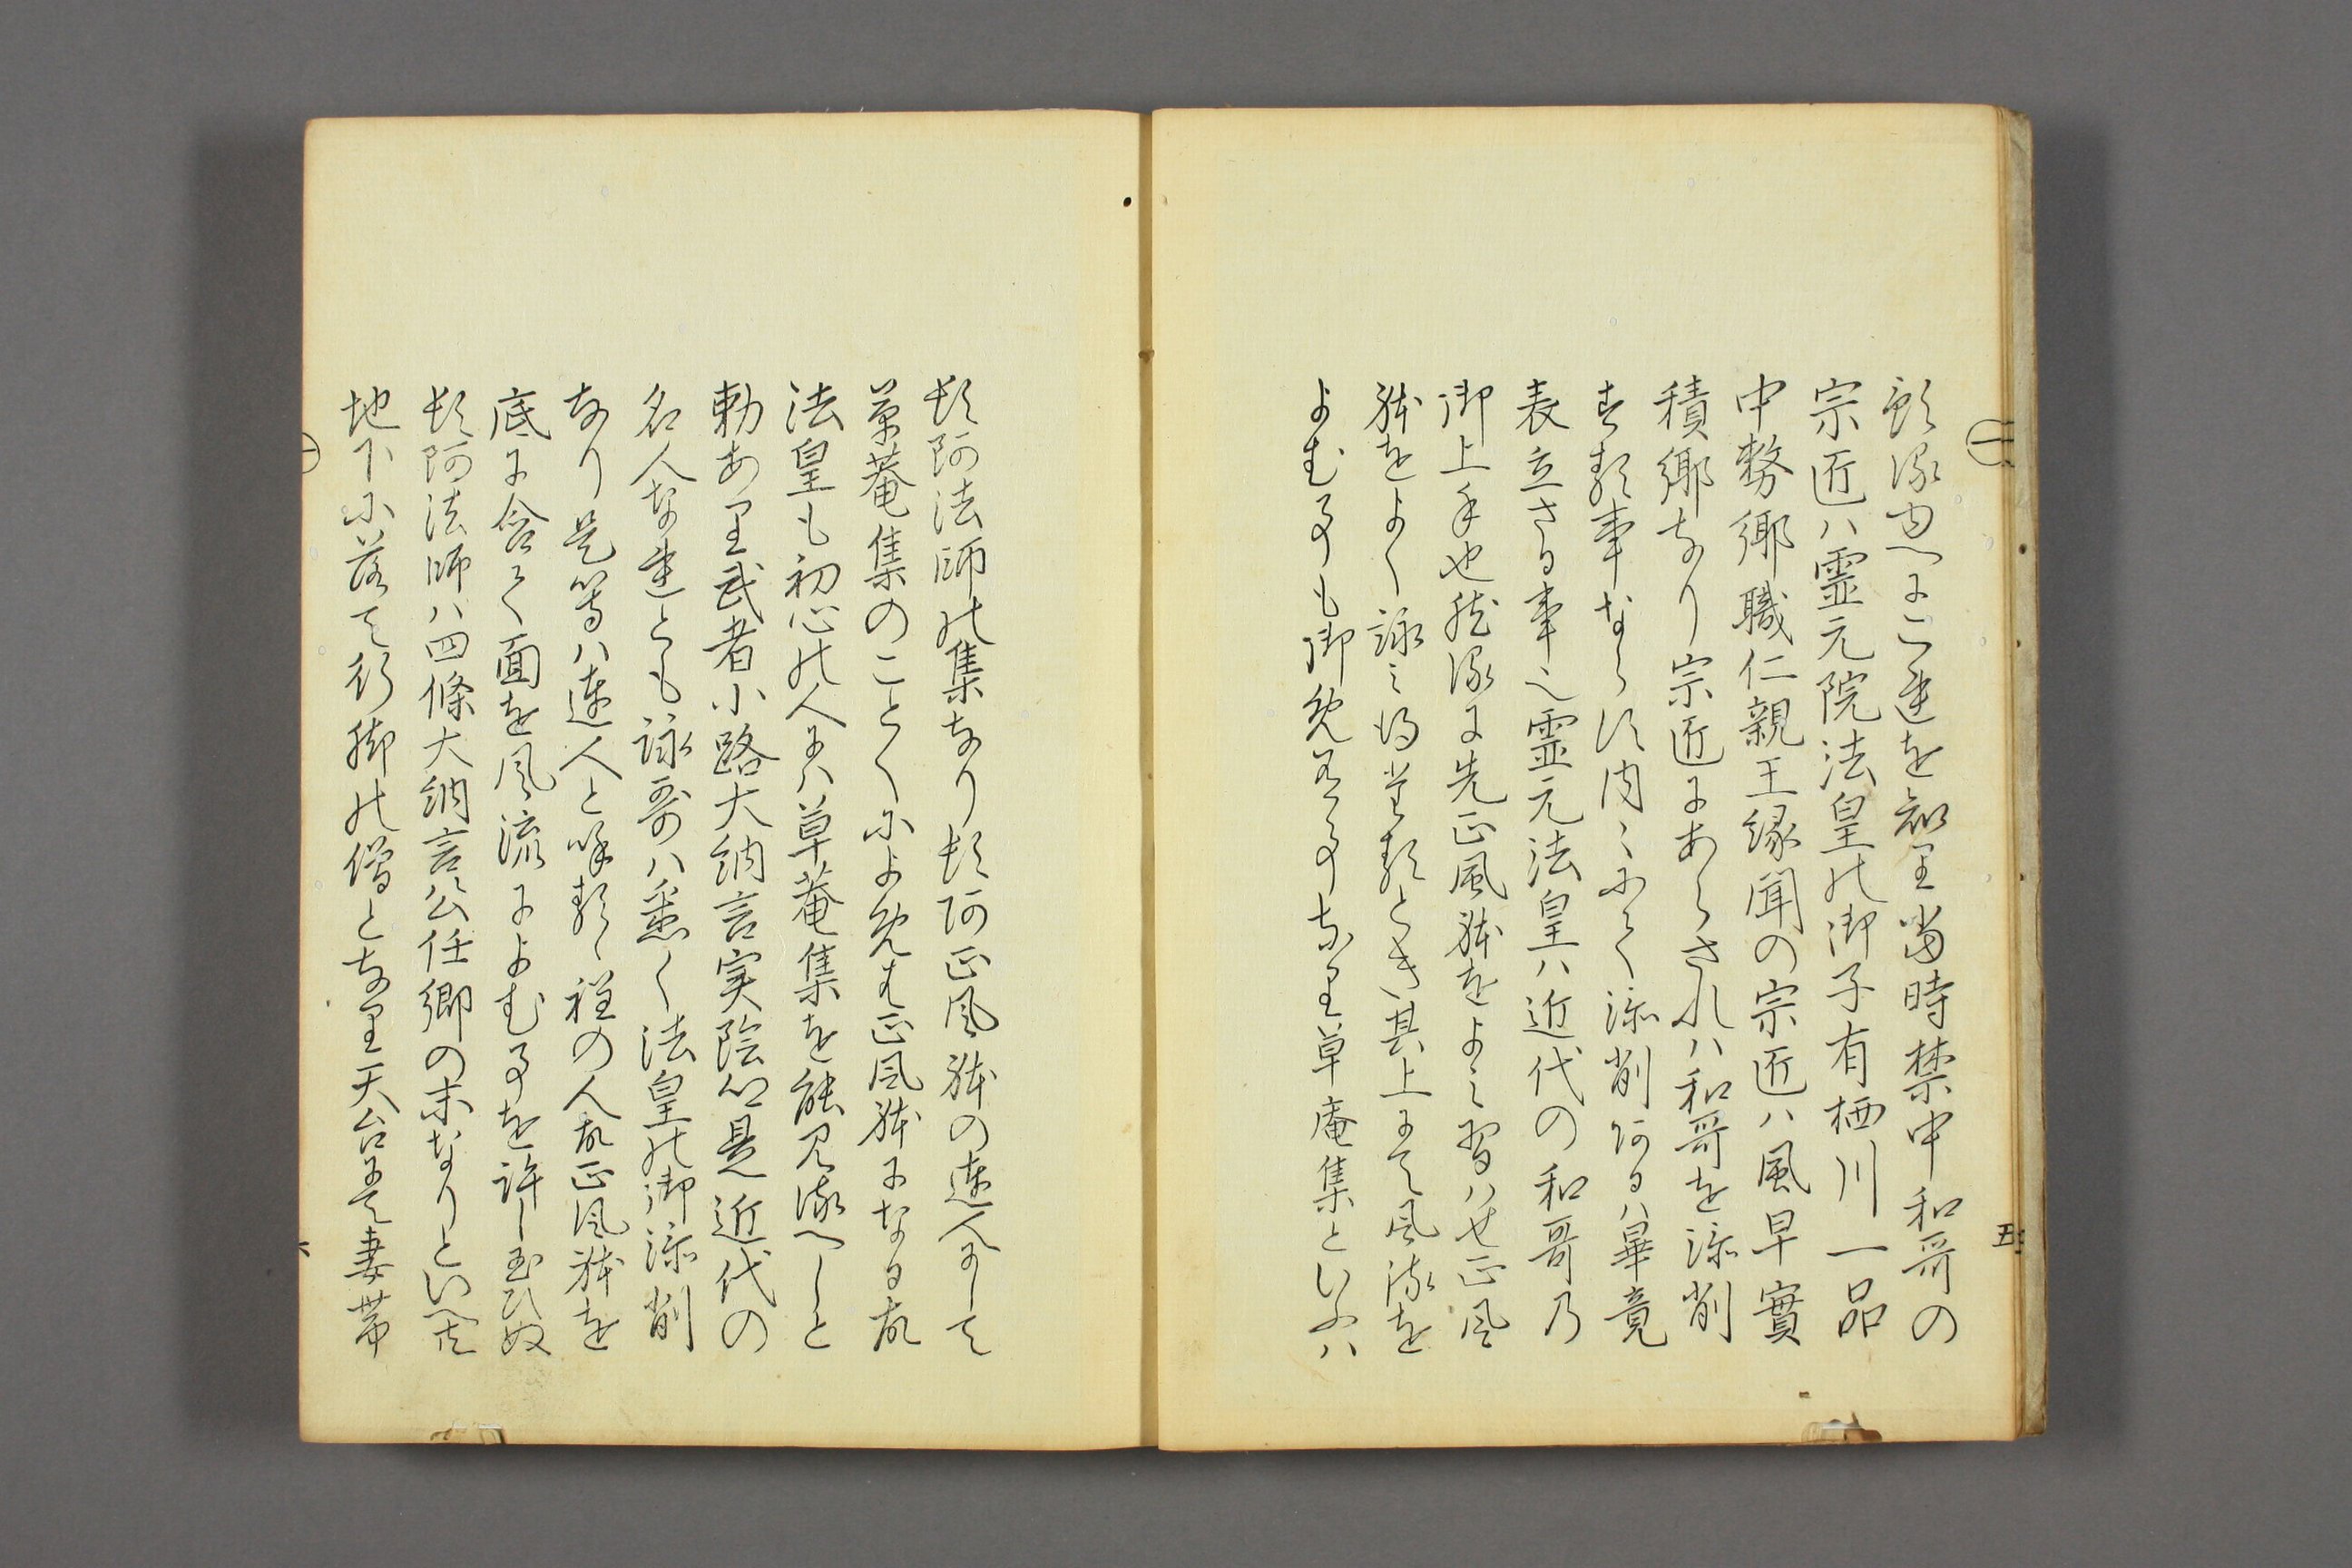 宗匠ハ霊元院法皇の御子有栖川一品
中務卿職仁親王縁聞の宗匠ハ風早實
積卿なり宗匠にあらされハ和哥を添削
する事ならす内々にて添削あるハ畢竟
表立さる事也霊元法皇ハ近代の和哥乃
御上手也然るに先正風躰をよミ習ハせ正風
躰をよく詠ミ得たるとき其上にて風流を
よむ事も御免ある事なり草庵集といふハ
頓阿法師の集なり頓阿正風躰の達人にして
草菴集のことくによめは正風躰になる故
法皇も初心の人にハ草菴集を能見るへしと
勅あり武者小路大納言実陰卿是近代の
名人なれとも詠哥ハ悉く法皇の御添削
なり是等ハ達人と呼るゝ程の人故正風躰を
底に含て面を風流によむ事を許し玉ひぬ
頓阿法師ハ四條大納言公任卿の末なりといへ共
地下に落て行脚の僧となり天台にて妻帯
五
六